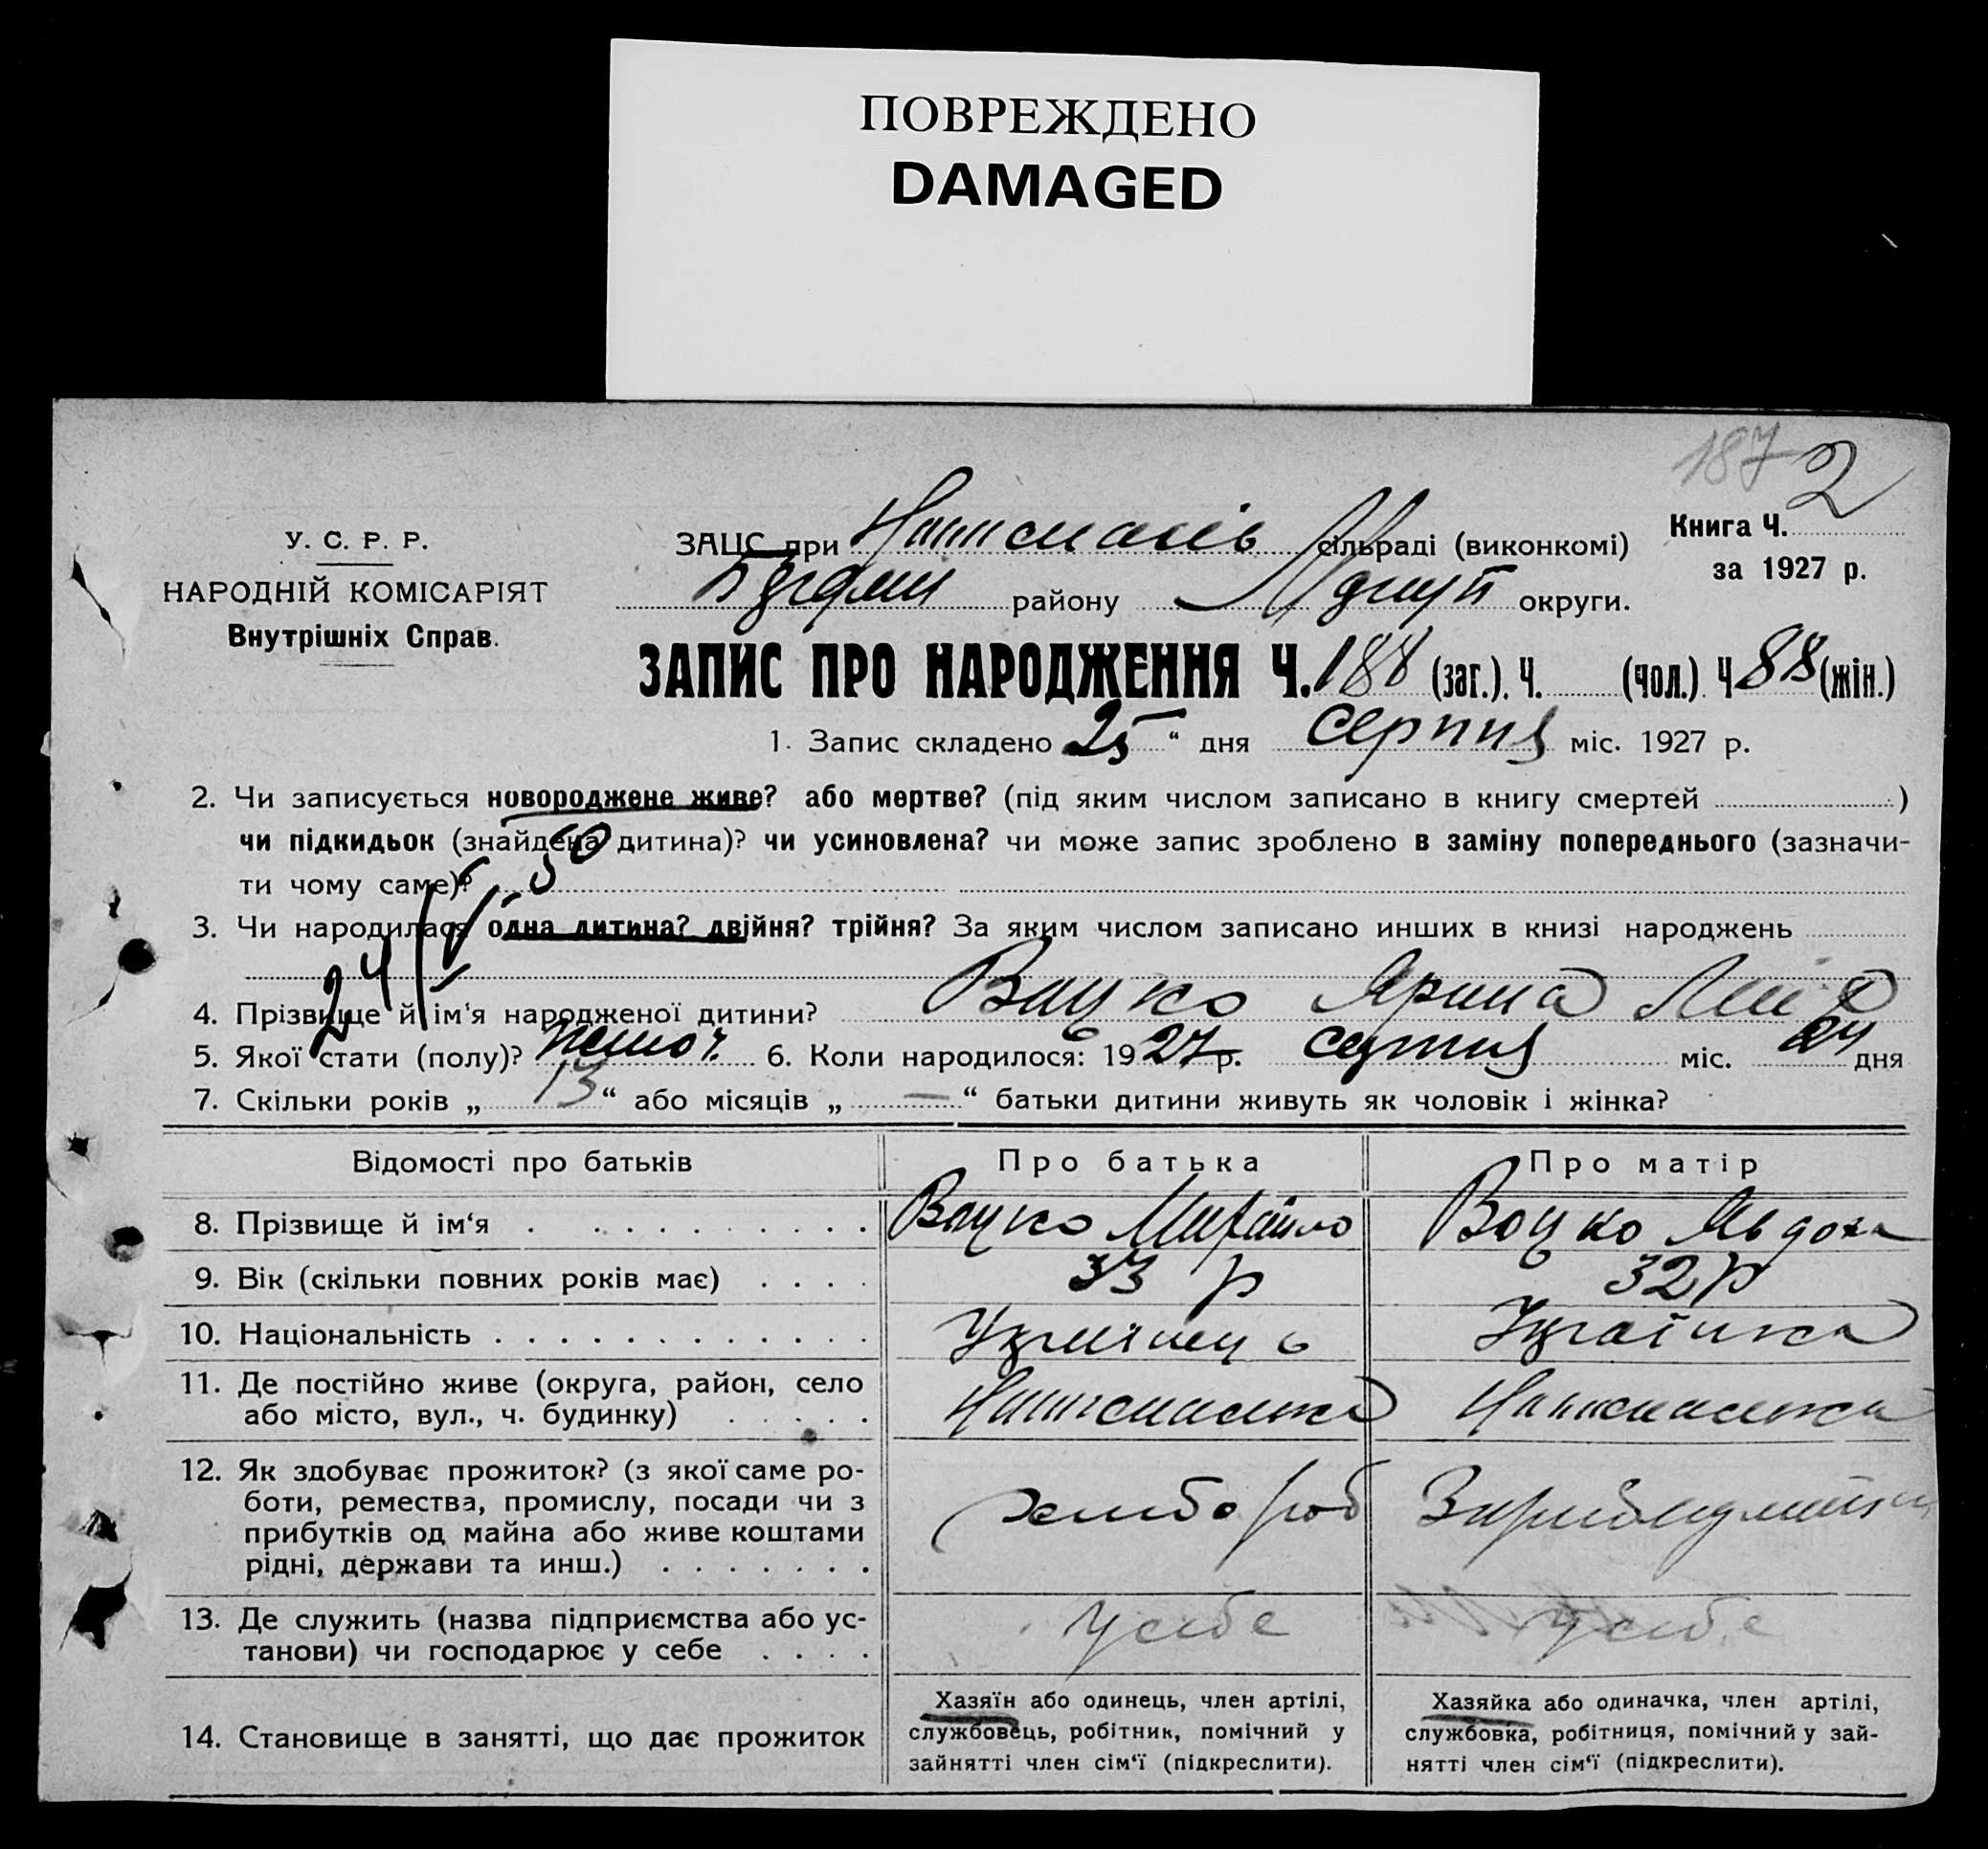 ПОВРЕЖДЕНО
DAMAGED
187 2
У. С. Р. Р.
НАРОДНІЙ КОМІСАРІЯТ
Внутрішніх Справ.
ЗАЦС при сільраді (виконкомі)
району округи.
Книга Ч.
за 1927 р.
ЗАПИС ПРО НАРОДЖЕННЯ Ч. 188 (заг.). Ч. (чол.). Ч 88 (жін.)
1. Запис складено 25 “ дня серпня міс. 1927 р.
2. Чи записується новороджене живе? або мертве? (під яким числом записано в книгу смертей )
чи підкидьок (знайдена дитина)? чи усиновлена? чи може запис зроблено в заміну попереднього (зазначи-
ти чому саме)? 50
3. Чи народилася одна дитина? двійня? трійня? За яким числом записано инших в книзі народжень
24
4. Прізвище й ім‘я народженої дитини? Вацко Ярина
5. Якої стати (полу)? 6. Коли народилося: 1927 р. серпня міс. 24 дня
7. Скільки років „ 13 “ або місяців „ — “ батьки дитини живуть як чоловік і жінка?
Відомості про батьків Про батька Про матір
8. Прізвище й ім‘я Вацко Михайло Воцко Явдоха
9. Вік (скільки повних років має) 33 р 32 р
10. Національність Українець Українка
11. Де постійно живе (округа, район, село
або місто, вул., ч. будинку)
12. Як здобуває прожиток? (з якої саме ро-
боти, ремества, промислу, посади чи з
прибутків од майна або живе коштами
рідні, держави та инш.) хлібороб
13. Де служить (назва підприємства або ус-
танови) чи господарює у себе у себе у себе
14. Становище в занятті, що дає прожиток
Хазяїн або одинець, член артілі,
службовець, робітник, помічний у
зайнятті член сім‘ї (підкреслити).
Хазяйка або одиначка, член артілі,
службовка, робітниця, помічний у зай-
нятті член сім‘ї (підкреслити).